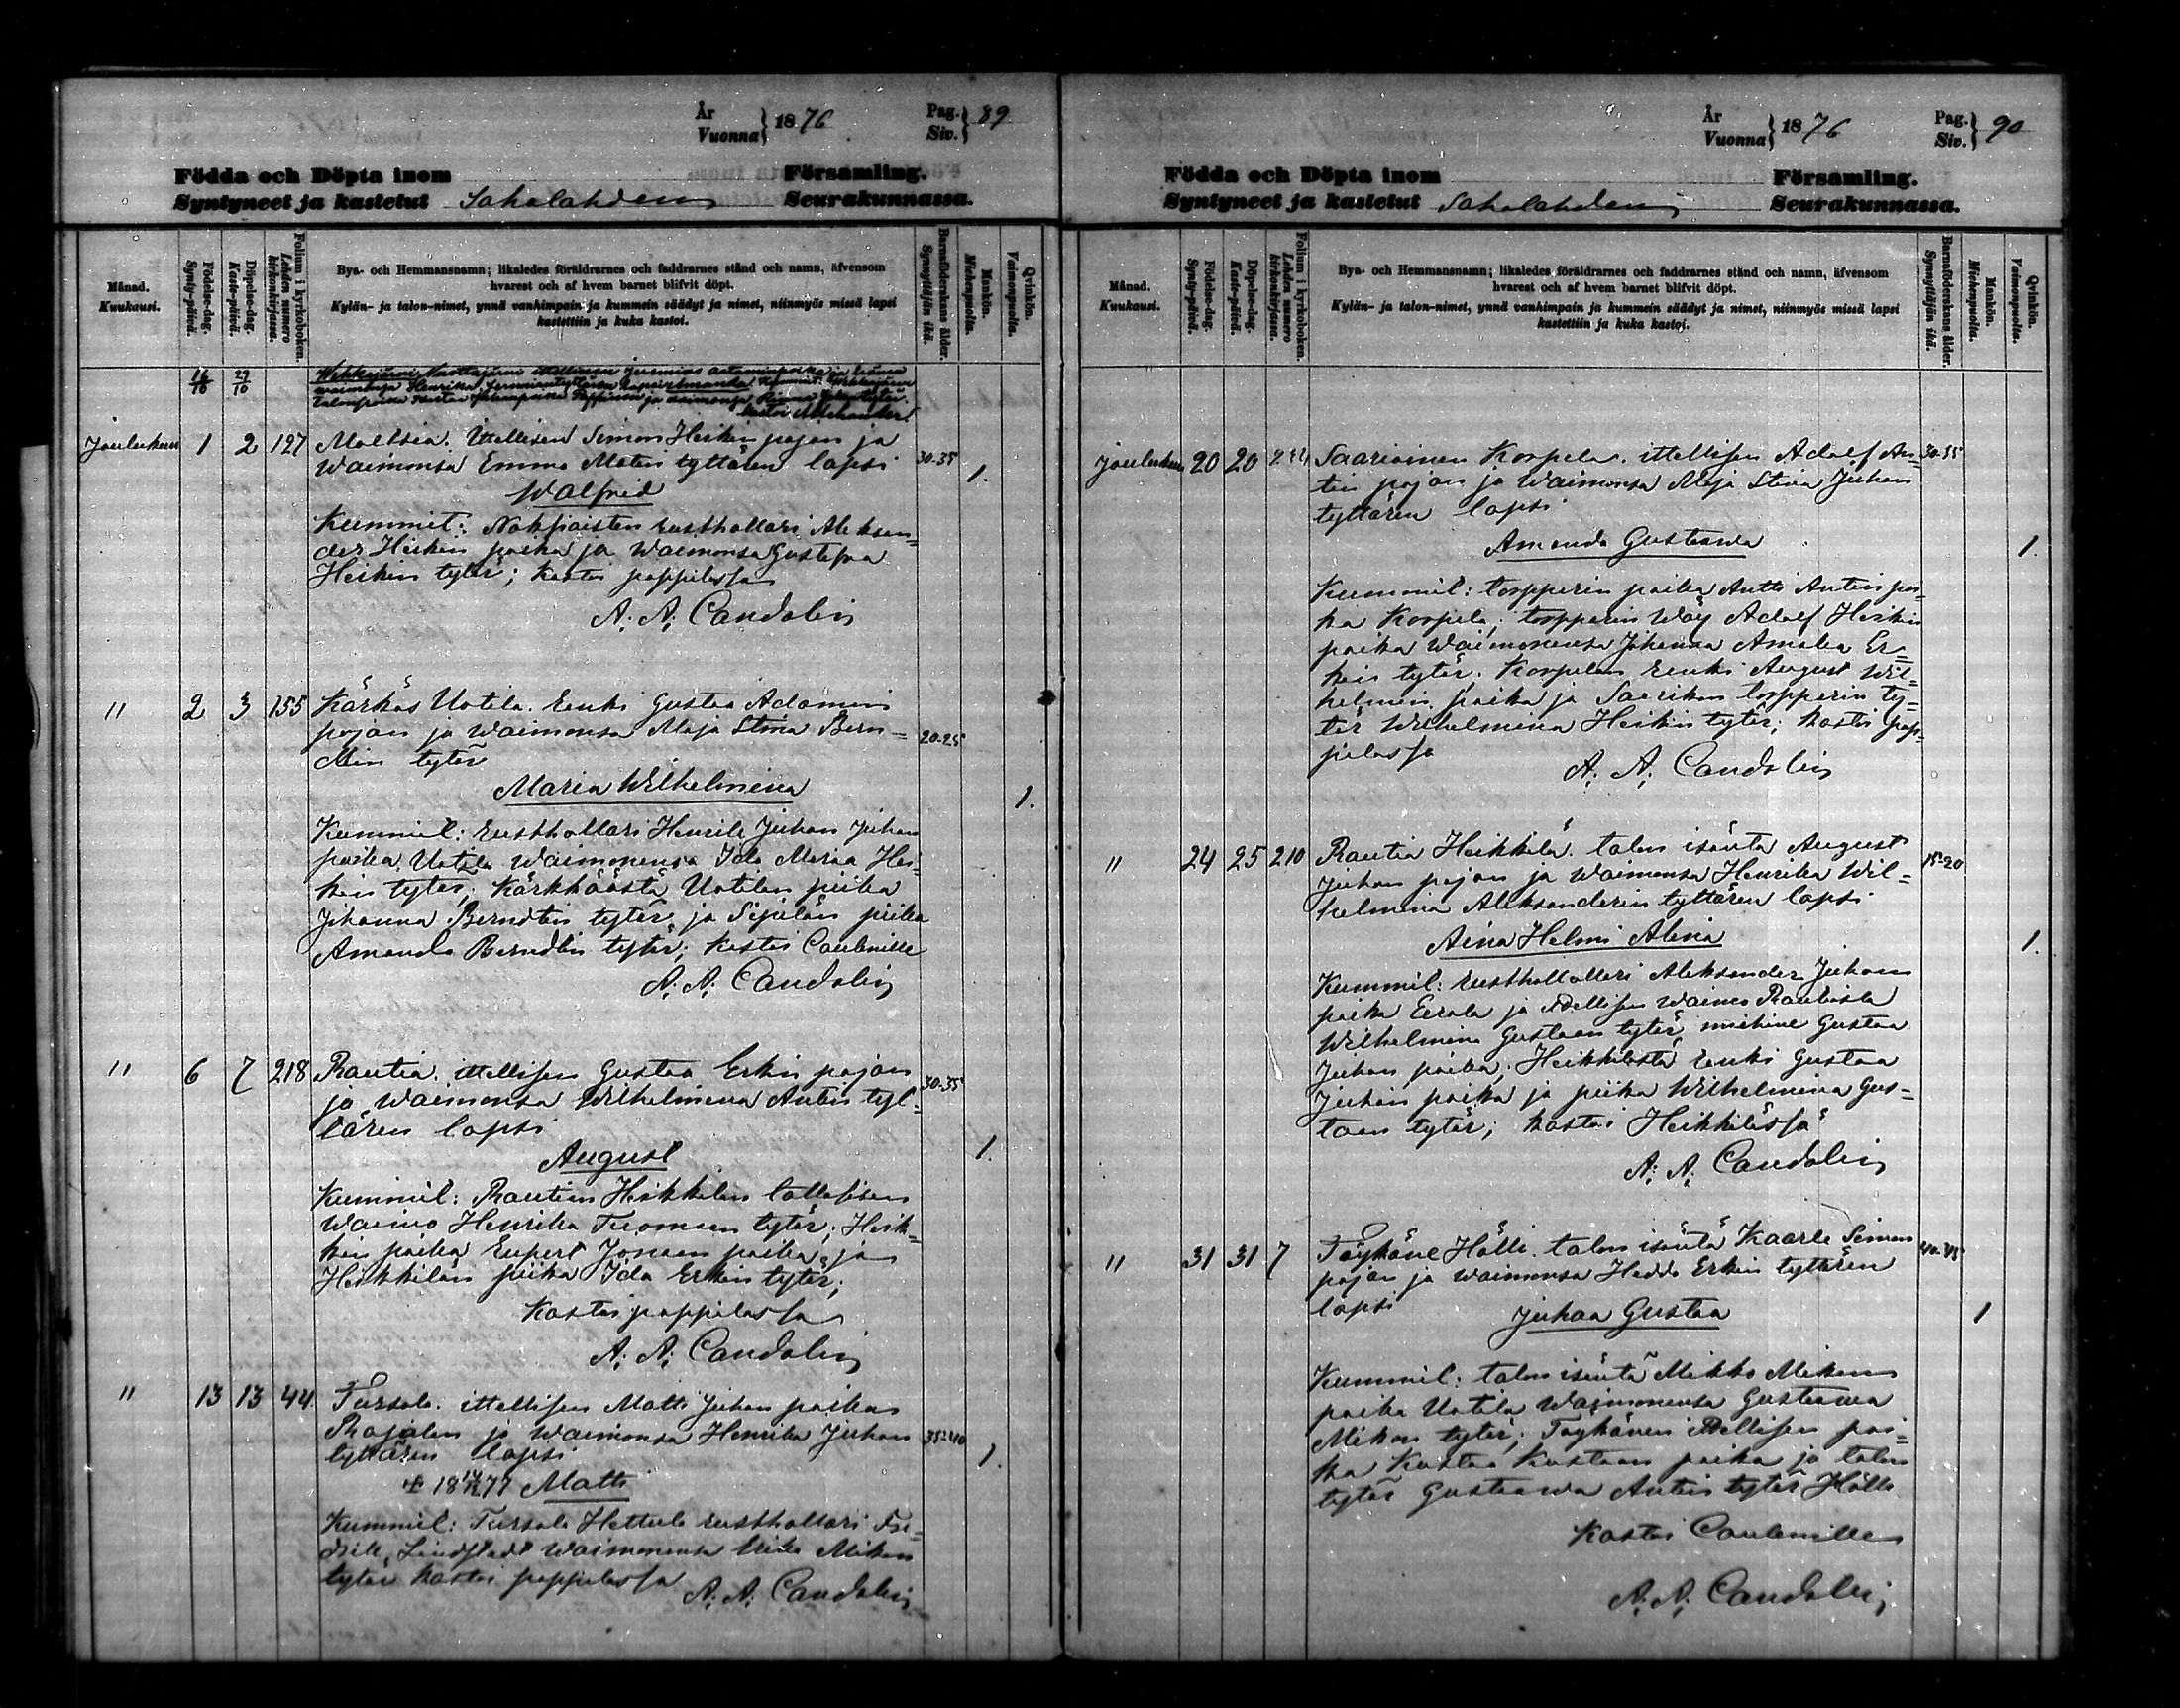 År
Vuonna } 1876
Pag.
Siv. } 89
Födda och Döpta inom Församling.
Syntyneet ja kastetut Sahalahden Seurakunnassa.
Månad.
Kuukausi.
Födelse-dag.
Synty-päivä.
Döpelse-dag.
Kaste-päivä.
Folium i kyrkoboken.
Lehden numero kirkonkirjassa.
Bya- och Hemmansnamn; likaledes föräldrarnes och faddrarnes stånd och namn, äfvensom
hvarest och af hvem barnet blifvit döpt.
Kylän- ja talon-nimet, ynnä vanhimpain ja kummein säädyt ja nimet, niinmyös missä lapsi
kastettiin ja kuka kastoi.
Barnaföderskans ålder.
Synnyttäjän ikä.
Mankön.
Miehenpuolta.
Qvinkön.
Vaimonpuolta.
16/10 29/10
Joulukuu 1 2 127 Moltsia. Ittellisen Simon Heikin pojan ja
Waimonsa Emma Matin tyttären lapsi 30-35 1.
Walfrid
Kummit: Nakkaisten rusthollari Aleksan=
der Heikin poika ja Waimonsa Gustafva
Heikin tytär; kastoi pappilassa
A. A. Candolin
" 2 3 155 Kärkäs Uotila. Renki Gustaa Adamin
pojan ja Waimonsa Maja Stina Bern= 20-25
dtin tytär
Maria Wilhelmina 1.
Kummit: rusthollari Henrik Juhan Juhan
poika Uotila Waimonensa Ida Maria Hei=
kin tytär; Kärkäästä Uotilan piika
Johanna Berndtin tytär ja Sipilän piika
Amanda Berndtin tytär; kastoi Caulenille
A. A. Candolin
" 6 7 218 Rautia. ittellisen Gustaa Erkin pojan 30-35
ja Waimonsa Wilhelmina Antin tyt=
tären lapsi
August 1.
Kummit: Rautian Heikkilän
Waimo Henrika Tuomaan tytär; Heik=
kin poika Eupert Joonaan poika ja
Heikkilän piika Ida Erkin tytär;
Kastoi pappilassa
A. A. Candolin
" 13 13 44 Tursola. ittellisen Matti Juhan poikan
Rajalan ja Waimonsa Henrika Juhan 35-40
tyttären lapsi 1.
Matti
Kummit: Tursola Hettula rusthollari Fre=
drik Lindstedt Waimonensa Mikon
tytär kastoi pappilassa
A. A. Candolin
År
Vuonna } 1876
Pag.
Siv. } 90
Födda och Döpta inom Församling.
Syntyneet ja kastetut Sahalahden Seurakunnassa.
Månad.
Kuukausi.
Födelse-dag.
Synty-päivä.
Döpelse-dag.
Kaste-päivä.
Folium i kyrkoboken.
Lehden numero kirkonkirjassa.
Bya- och Hemmansnamn; likaledes föräldrarnes och faddrarnes stånd och namn, äfvensom
hvarest och af hvem barnet blifvit döpt.
Kylän- ja talon-nimet, ynnä vanhimpain ja kummein säädyt ja nimet, niinmyös missä lapsi
kastettiin ja kuka kastoi.
Barnaföderskans ålder.
Synnyttäjän ikä.
Mankön.
Miehenpuolta.
Qvinkön.
Vaimonpuolta.
Joulukuu 20 20 Saarioinen Korpela. ittellisen Adolf An= 30-35
tin pojan ja Waimonsa Maja Stina Juhan
tyttären lapsi
Amanda Gustaava 1.
Kummit: torpperin poika Antti Antin poi=
ka Korpela; torpperin Wäy Adolf Heikin
poika Waimonensa Johanna Amalia Er=
kin tytär; Korpelan renki August Wil=
helmin poika ja Saarikon torpperin ty=
tär Wilhelmina Heikin tytär; kastoi pap=
pilassa
A. A. Candolin
" 24 25 210 Rautia Heikkilä. talon isäntä August 15-20
Juhan pojan ja Waimonsa Henrika Wil=
helmina Aleksanderin tyttären lapsi
Aina Helmi Alina 1.
Kummit: rusthollallari Aleksander Juhan
poika Eerola ja ittellisen Waimo Rautiosta
Wilhelmina Gustaan tytär; miekine Gustaa
Juhan poika; Heikkilästä renki Gustaa
Juhan poika ja piika Wilhelmina Gus=
taan tytär; kastoi Heikkilässä
A. A. Candolin
" 31 31 7 Töykäne Hölli. talon isäntä Kaarle Simon 40-45
pojan ja Waimonsa Hedda Erkin tyttären
lapsi
Juhaa Gustaa 1
Kummit: talon isäntä Mikko Mikon
poika Uotila Waimonensa Gustaava
Mikon tytär; Töykänen ittellisen poi=
ka Kustaa Kustaan poika ja talon
tytär Gustaava Antin tytär Hölli
Kastoi Caulenille
A. A. Candolin